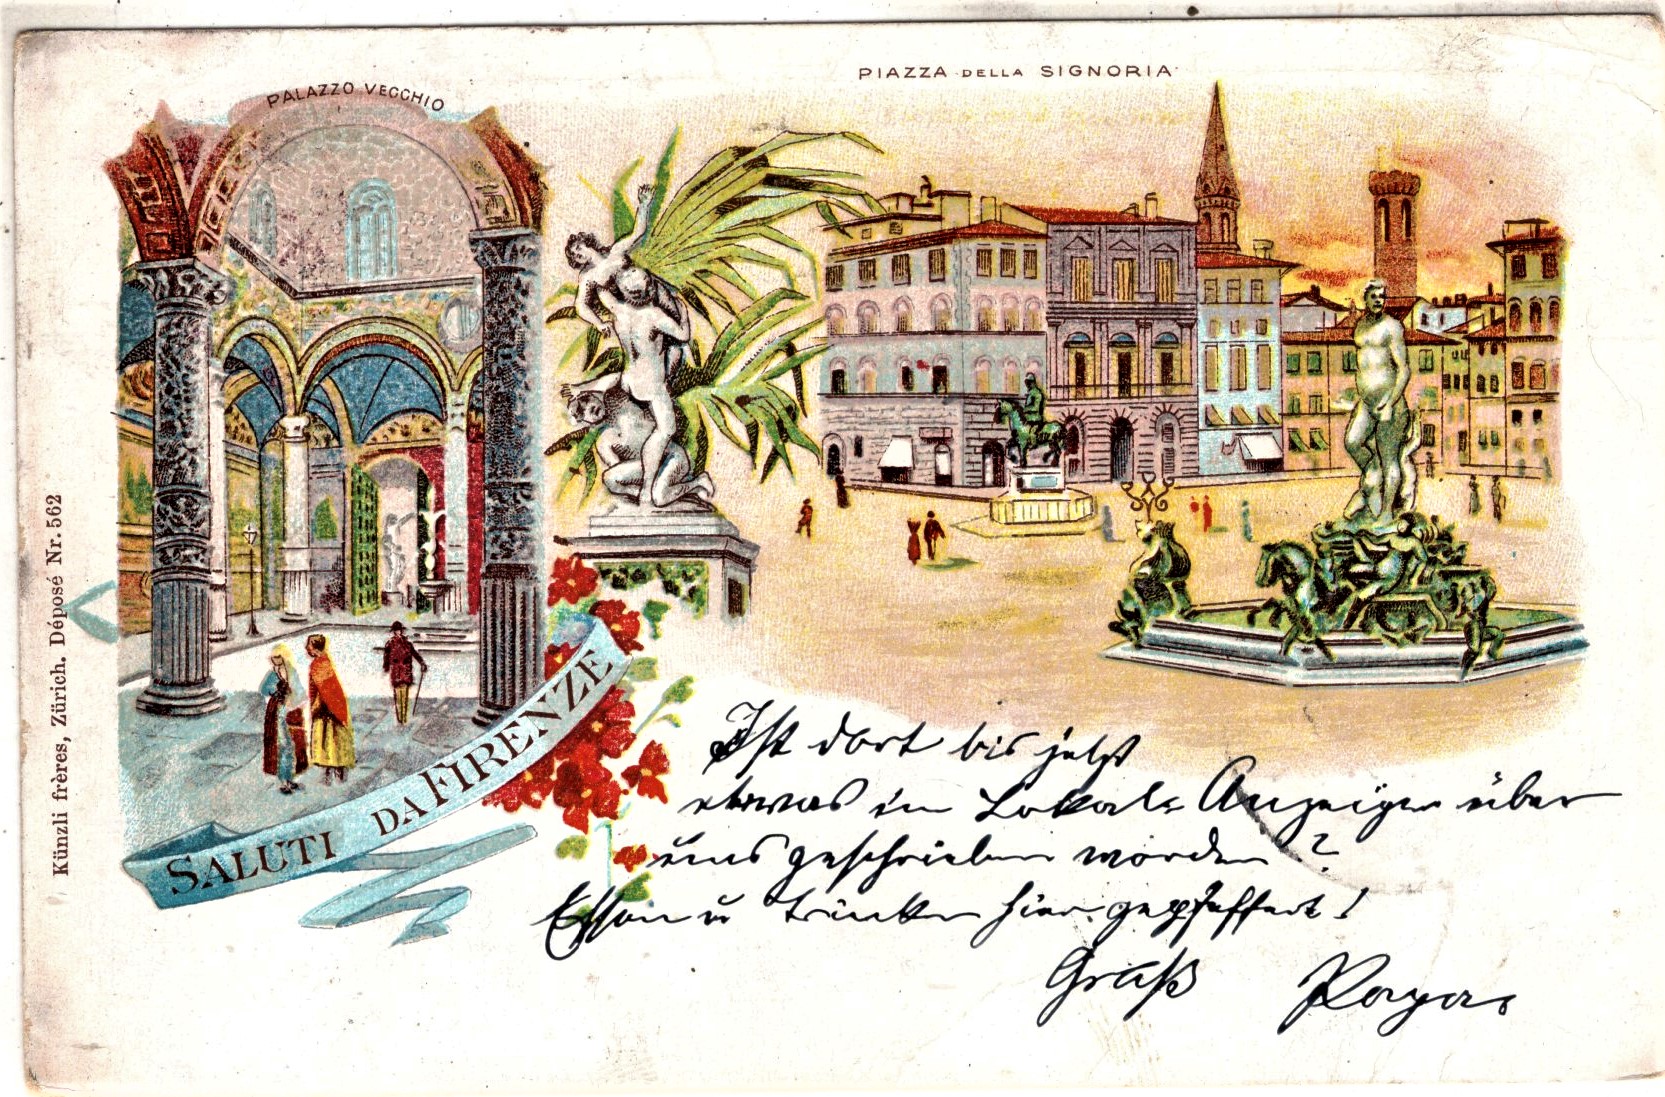 PALAZZO VECCHIO
PIAZZA DELLA SIGNORIA
Künzli frères, Zürich. Déposé Nr. 562
SALUTI DA FIRENZE
Ist dort bis jetzt
etwas im Lokale Anzeiger über
uns geschrieben worden?
Essen u trinken hier gepfeffert!
Gruß